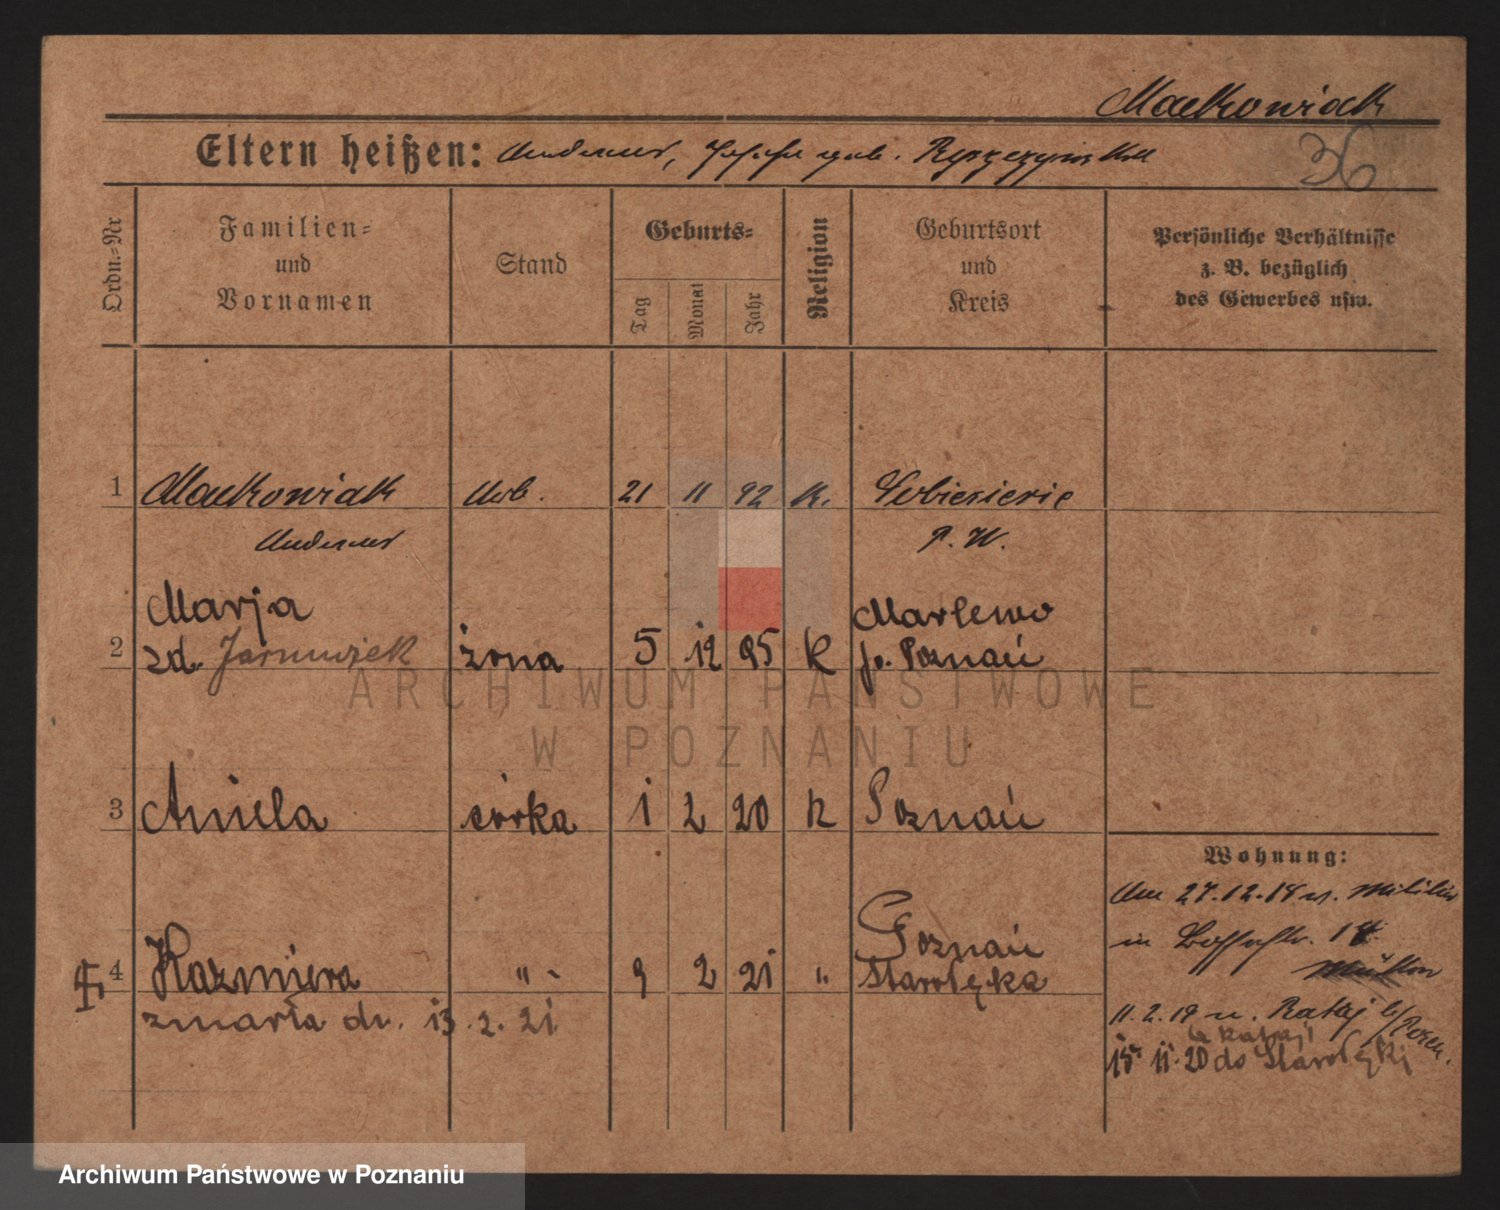 Maćkowiak
Eltern heißen: Andreas, Josefa geb. Ryszczyńska
36
Ordn.-Nr
Familien-
und
Vornamen
Stand
Geburts-
Tag
Monat
Jahr
Religion
Geburtsort
und
Kreis
Persönliche Verhältnisse
z. B. bezüglich
des Gewerbes usw.
1 Maćkowiak Arb. 21 11 92 K. Sobiesierie
Andreas P. W.
Marja Marlewo
2 zd. żona 5 12 95 K p. Poznań
ARCHIWUM PAŃSTWOWE
W POZNANIU
3 Aniela córka 1 2 20 K Poznań
Wohnung:
Am 27.12.18 v. Militär
in 18
Poznań
4 Kazmiera " 9 2 21 " Starołęka
zmarła dn. 13.2.21
11.2.19 n. Rataj b/Posen.
z Rataji
15 11.20 do Starołęki
Archiwum Państwowe w Poznaniu